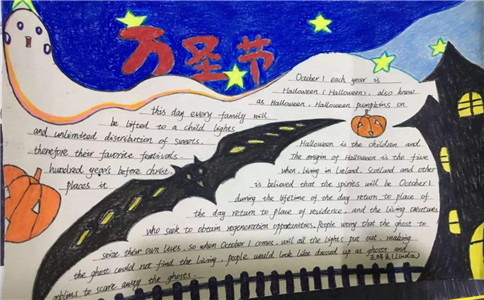 万圣节
October 1 each year is
Halloween (Halloween), also know
as Halloween. Halloween pumpkins on
this day every family will
be lifted to a child lights
and unlimited distribution of sweets.
therefore their favorite festivals.
hundred years before christ.
places it
Halloween is the children and
The origin of Halloween is the five
when living in Ireland, Scotland and other
is believed that the spirits will be October 1
during the lifetime of the day return to place of
the day return to place of residence, and the living creatures
who seek to obtain regeneration opportunities. People worry that the ghost to
seize their own lives, so when October 1 comes, will all the lights put out, making
the ghost could not find the living. people would look like dressed up as ghosts and
goblins to scare away the ghosts.
(Linda)